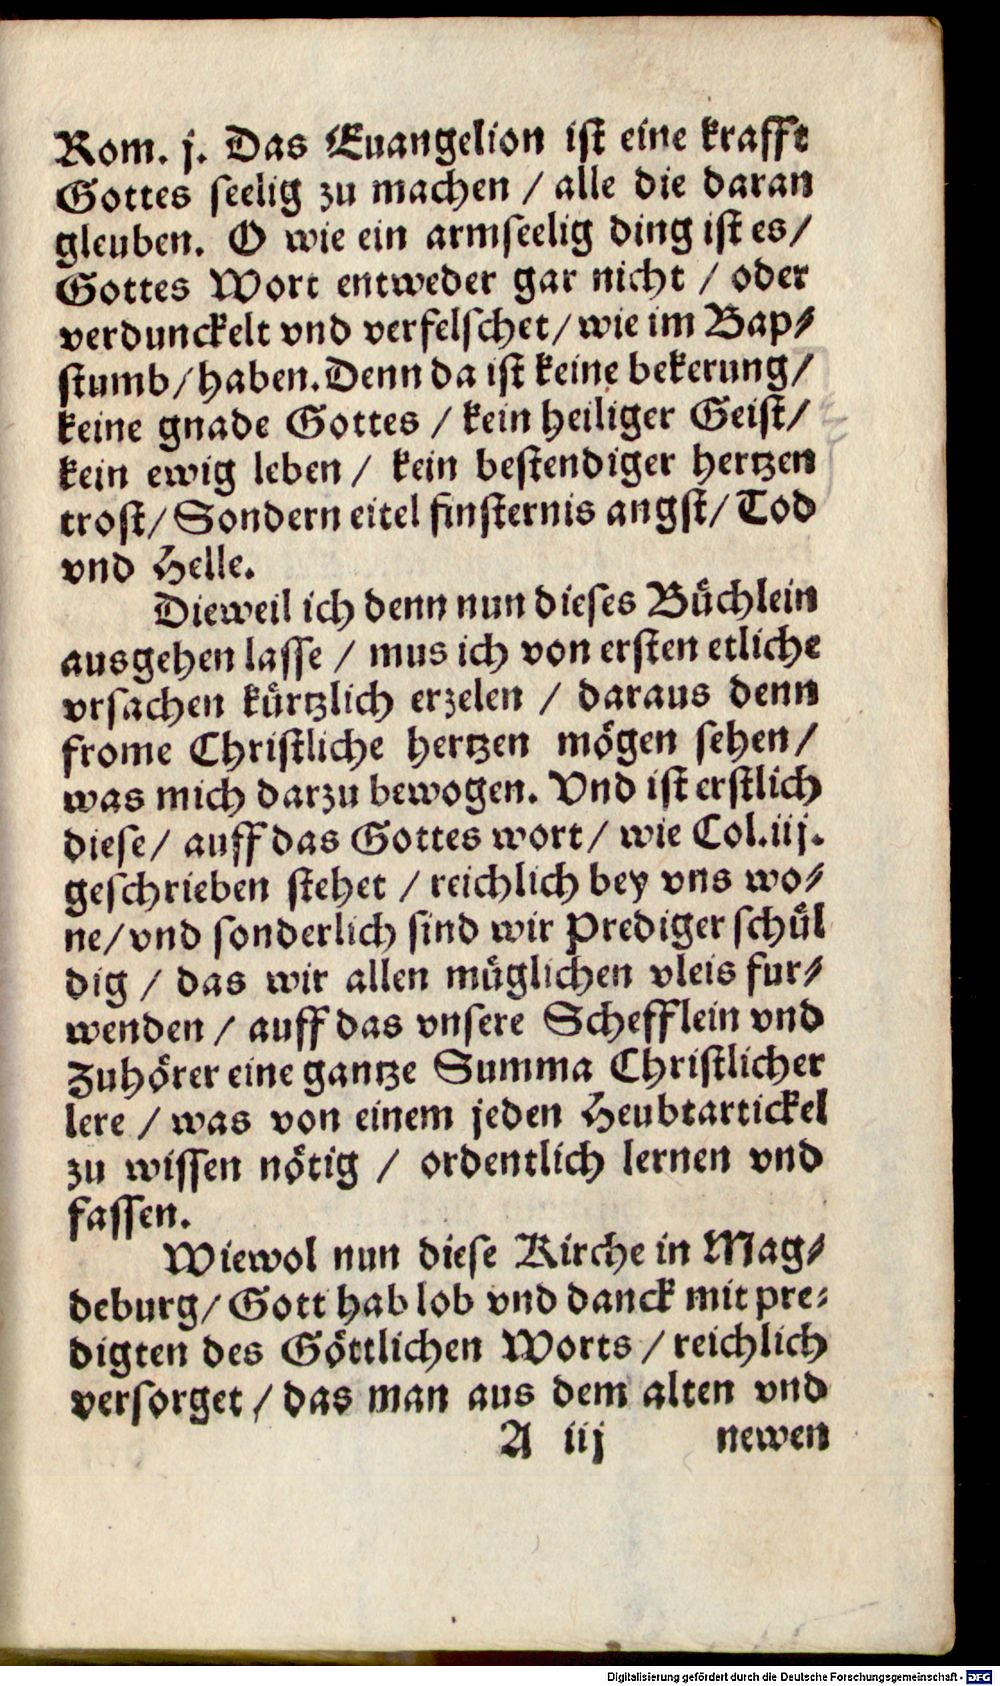 Rom. j. Das Euangelion ist eine krafft
Gottes seelig zu machen / alle die daran
gleuben. O wie ein armseelig ding ist es /
Gottes Wort entweder gar nicht / oder
verdunckelt vnd verfelschet / wie im Bap⸗
stumb / haben. Denn da ist keine bekerung /
keine gnade Gottes / kein heiliger Geist /
kein ewig leben / kein bestendiger hertzen
trost / Sondern eitel finsternis angst / Tod
vnd Helle.
Dieweil ich denn nun dieses Bůchlein
ausgehen lasse / mus ich von ersten etliche
vrsachen kůrtzlich erzelen / daraus denn
frome Christliche hertzen mögen sehen /
was mich darzu bewogen. Vnd ist erstlich
diese / auff das Gottes wort / wie Col. iij.
geschrieben stehet / reichlich bey vns wo⸗
ne / vnd sonderlich sind wir Prediger schůl
dig / das wir allen můglichen vleis fur⸗
wenden / auff das vnsere Schefflein vnd
Zuhörer eine gantze Summa Christlicher
lere / was von einem jeden Heubtartickel
zu wissen nötig / ordentlich lernen vnd
fassen.
Wiewol nun diese Kirche in Mag⸗
deburg / Gott hab lob vnd danck mit pre⸗
digten des Göttlichen Worts / reichlich
versorget / das man aus dem alten vnd
A iij newen
Digitalisierung gefördert durch die Deutsche Forschungsgemeinschaft - DFG